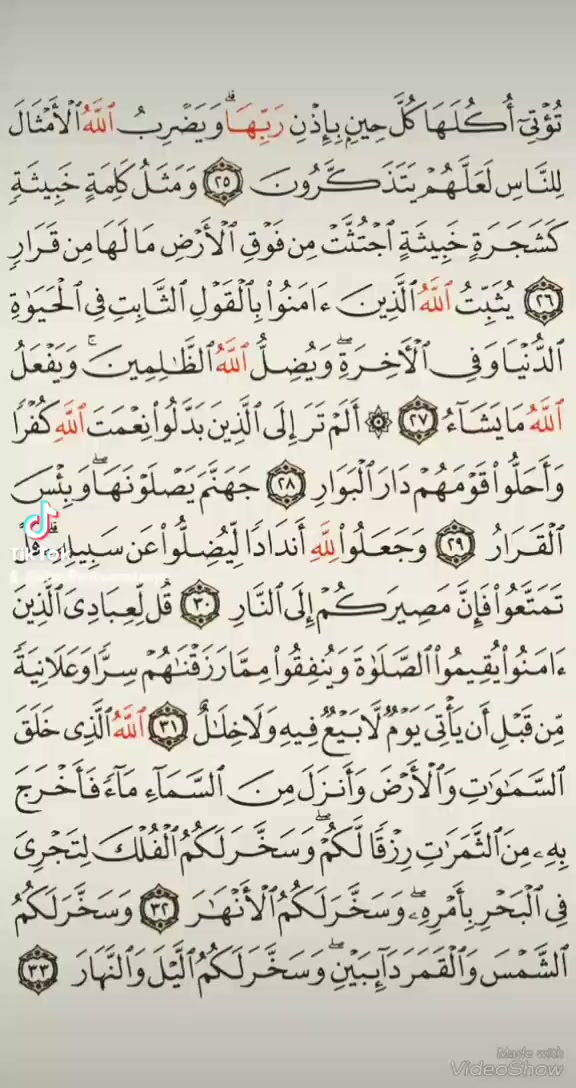 تُؤْتِىٓ أُكُلَهَا كُلَّ حِينٍۭ بِإِذْنِ رَبِّهَاۗ وَيَضْرِبُ ٱللَّهُ ٱلْأَمْثَالَ
لِلنَّاسِ لَعَلَّهُمْ يَتَذَكَّرُونَ ٢٥ وَمَثَلُ كَلِمَةٍ خَبِيثَةٍ
كَشَجَرَةٍ خَبِيثَةٍ ٱجْتُثَّتْ مِن فَوْقِ ٱلْأَرْضِ مَا لَهَا مِن قَرَارٍ
٢٦ يُثَبِّتُ ٱللَّهُ ٱلَّذِينَ ءَامَنُوا۟ بِٱلْقَوْلِ ٱلثَّابِتِ فِى ٱلْحَيَوٰةِ
ٱلدُّنْيَا وَفِى ٱلْأَخِرَةِۖ وَيُضِلُّ ٱللَّهُ ٱلظَّٰلِمِينَۚ وَيَفْعَلُ
ٱللَّهُ مَا يَشَآءُ ٢٧ ۞ أَلَمْ تَرَ إِلَى ٱلَّذِينَ بَدَّلُوا۟ نِعْمَتَ ٱللَّهِ كُفْرًا
وَأَحَلُّوا۟ قَوْمَهُمْ دَارَ ٱلْبَوَارِ ٢٨ جَهَنَّمَ يَصْلَوْنَهَاۖ وَبِئْسَ
ٱلْقَرَارُ ٢٩ وَجَعَلُوا۟ لِلَّهِ أَندَادًا لِّيُضِلُّوا۟ عَن سَبِيلِهِۦۗ قُلْ
تَمَتَّعُوا۟ فَإِنَّ مَصِيرَكُمْ إِلَى ٱلنَّارِ ٣٠ قُل لِّعِبَادِىَ ٱلَّذِينَ
ءَامَنُوا۟ يُقِيمُوا۟ ٱلصَّلَوٰةَ وَيُنفِقُوا۟ مِمَّا رَزَقْنَٰهُمْ سِرًّا وَعَلَانِيَةً
مِّن قَبْلِ أَن يَأْتِىَ يَوْمٌ لَّا بَيْعٌ فِيهِ وَلَا خِلَٰلٌ ٣١ ٱللَّهُ ٱلَّذِى خَلَقَ
ٱلسَّمَٰوَٰتِ وَٱلْأَرْضَ وَأَنزَلَ مِنَ ٱلسَّمَآءِ مَآءً فَأَخْرَجَ
بِهِۦ مِنَ ٱلثَّمَرَٰتِ رِزْقًا لَّكُمْۖ وَسَخَّرَ لَكُمُ ٱلْفُلْكَ لِتَجْرِىَ
فِى ٱلْبَحْرِ بِأَمْرِهِۦۖ وَسَخَّرَ لَكُمُ ٱلْأَنْهَٰرَ ٣٢ وَسَخَّرَ لَكُمُ
ٱلشَّمْسَ وَٱلْقَمَرَ دَآئِبَيْنِۖ وَسَخَّرَ لَكُمُ ٱلَّيْلَ وَٱلنَّهَارَ ٣٣
TikTok
Made with
VideoShow